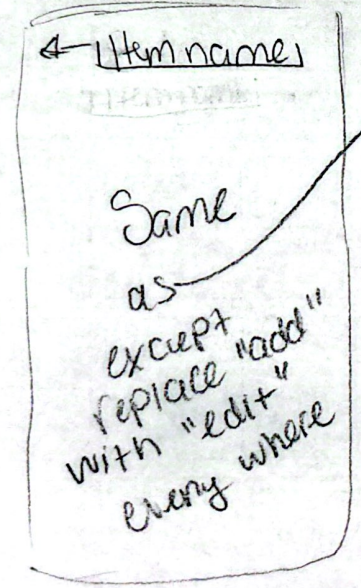 Item name
Same
as
except
replace "add"
with "edit"
every where